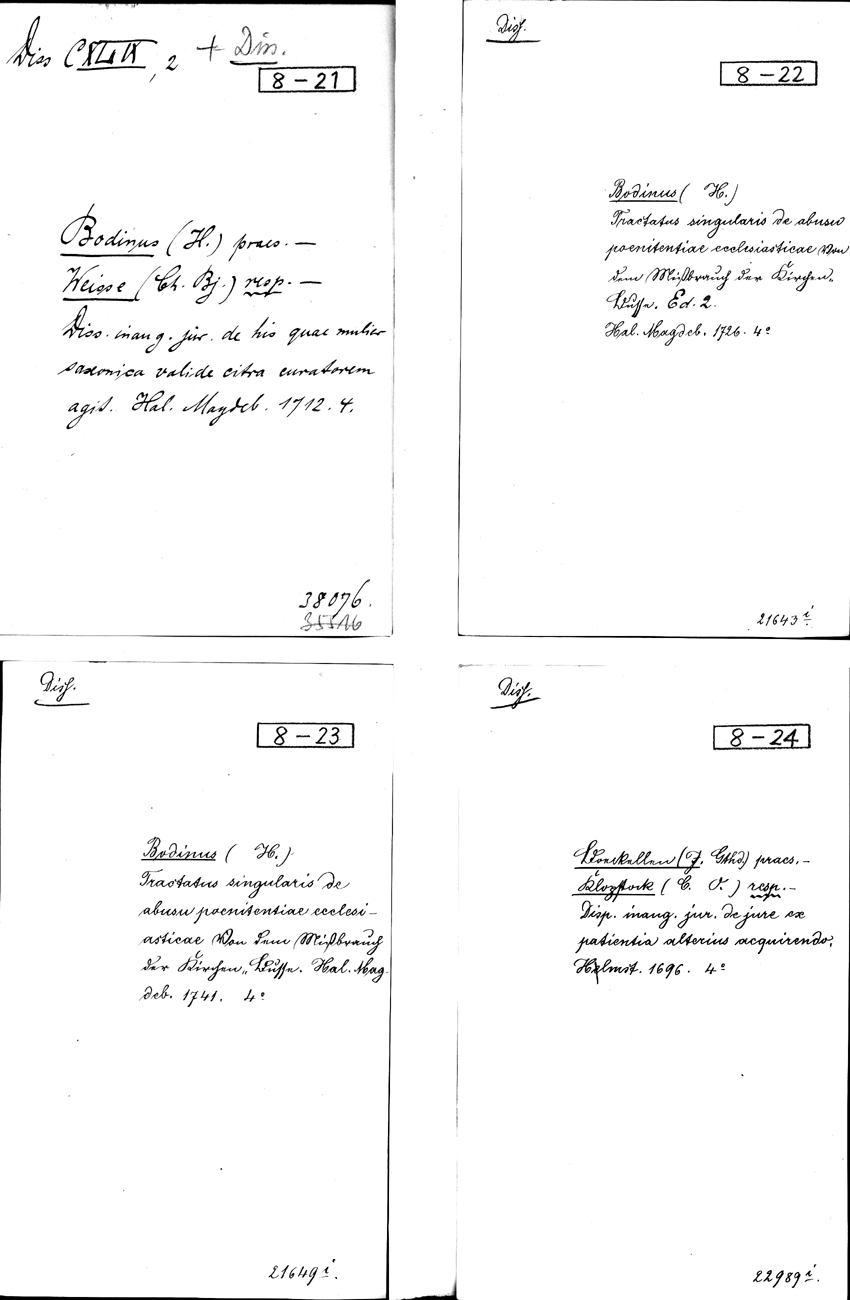 Diss CXLIX, 2 + Diss.
8-21
Bodinus (H.) praes. —
Weisse (Ch. Bj.) resp. —
Diss. inaug. jur. de his quae mulier
saxonica valide citra curatorem
agit. Hal. Magdeb. 1712. 4.
38076.
35516
Diss.
8-22
Bodinus ( H.)
Tractatus singularis de abusu
poenitentiae ecclesiasticae Von
dem Mißbrauch der Kirchen-
Busse. Ed. 2.
Hal. Magdeb. 1726. 4°
21643 i.
Diss.
8-23
Bodinus ( H.)
Tractatus singularis de
abusu poenitentiae ecclesi-
asticae Von dem Mißbrauch
der Kirchen-Busse. Hal. Mag
deb. 1741. 4°
21649 i.
Diss.
8-24
Boeckellen (J. Gthd) praes. —
Klopstock ( C. O. ) resp. —
Disp. inaug. jur. de jure ex
patientia alterius acquirendo.
Helmst. 1696. 4°
22989 i.